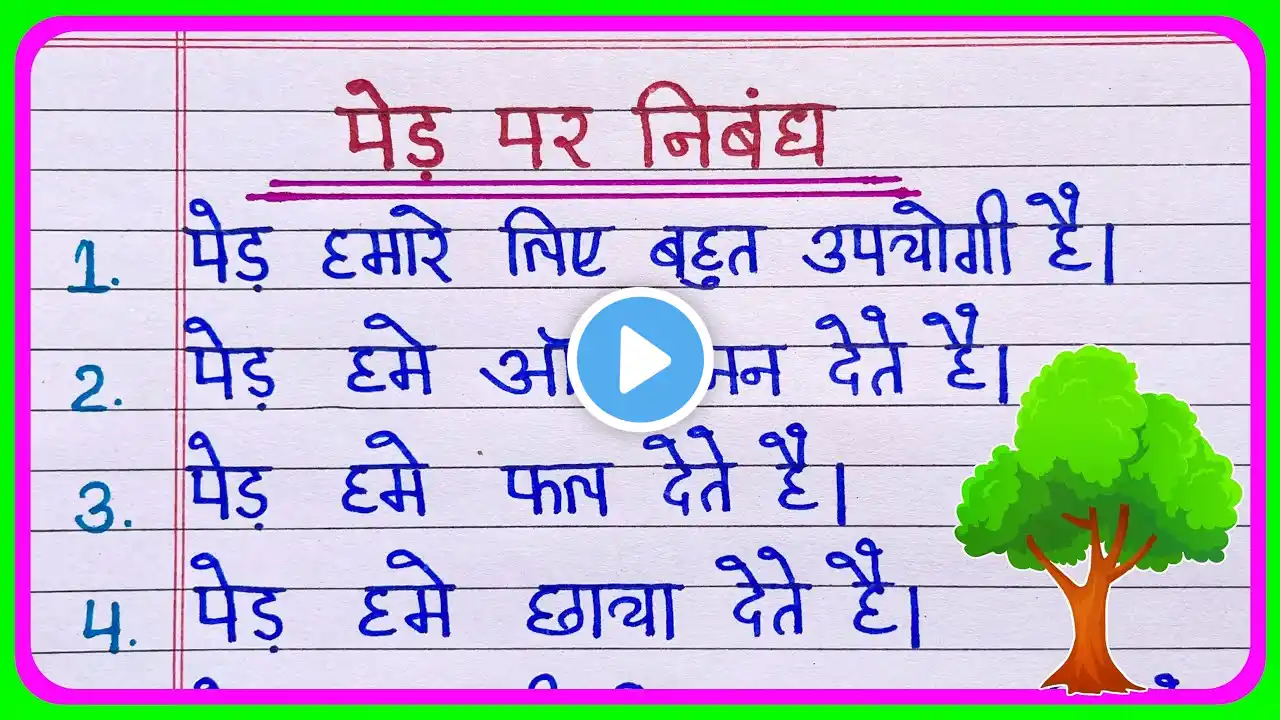 पेड़ पर निबंध
1. पेड़ हमारे लिए बहुत उपयोगी है।
2. पेड़ हमे देते है।
3. पेड़ हमे फल देते है।
4. पेड़ हमे छाया देते है।